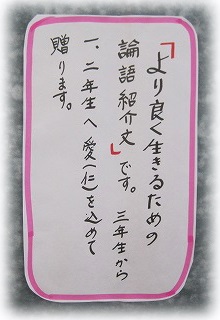 「より良く生きるための
論語紹介文」です。三年生から
一、二年生へ愛(仁)を込めて
贈ります。